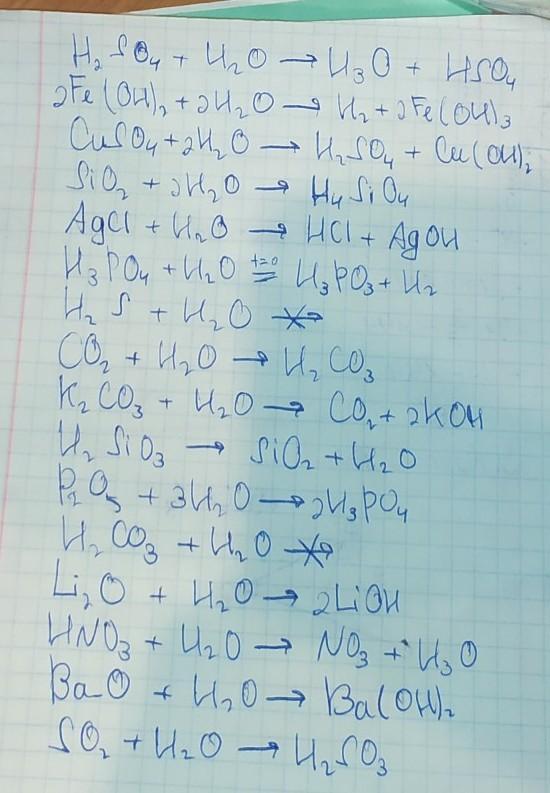 H₂SO₄ + H₂O → H₃O + HSO₄
2Fe(OH)₂ + 2H₂O → H₂ + 2Fe(OH)₃
CuSO₄ + 2H₂O → H₂SO₄ + Cu(OH)₂
SiO₂ + 2H₂O → H₄SiO₄
AgCl + H₂O → HCl + AgOH
H₃PO₄ + H₂O t=0 ⇌ H₃PO₃ + H₂
H₂S + H₂O ↛
CO₂ + H₂O → H₂CO₃
K₂CO₃ + H₂O → CO₂ + 2KOH
H₂SiO₃ → SiO₂ + H₂O
P₂O₅ + 3H₂O → 2H₃PO₄
H₂CO₃ + H₂O ↛
Li₂O + H₂O → 2LiOH
HNO₃ + H₂O → NO₃ + H₃O
BaO + H₂O → Ba(OH)₂
SO₂ + H₂O → H₂SO₃